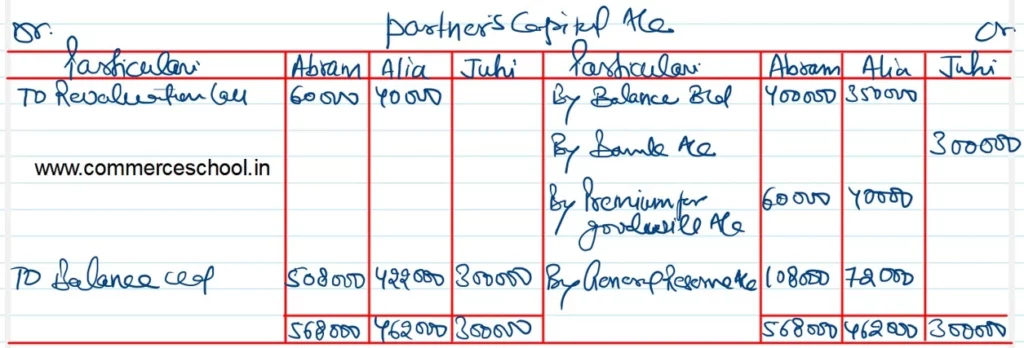 Dr. Partner's Capital A/c Cr.
Particulars Abram Alia Juhi Particulars Abram Alia Juhi
TO Revaluation Loss 60000 40000 By Balance B/d 400000 350000
By Bank A/c 300000
www.commerceschool.in
By Premium for 60000 40000
goodwill A/c
TO Balance c/d 508000 422000 300000 By General Reserve A/c 108000 72000
568000 462000 300000 568000 462000 300000